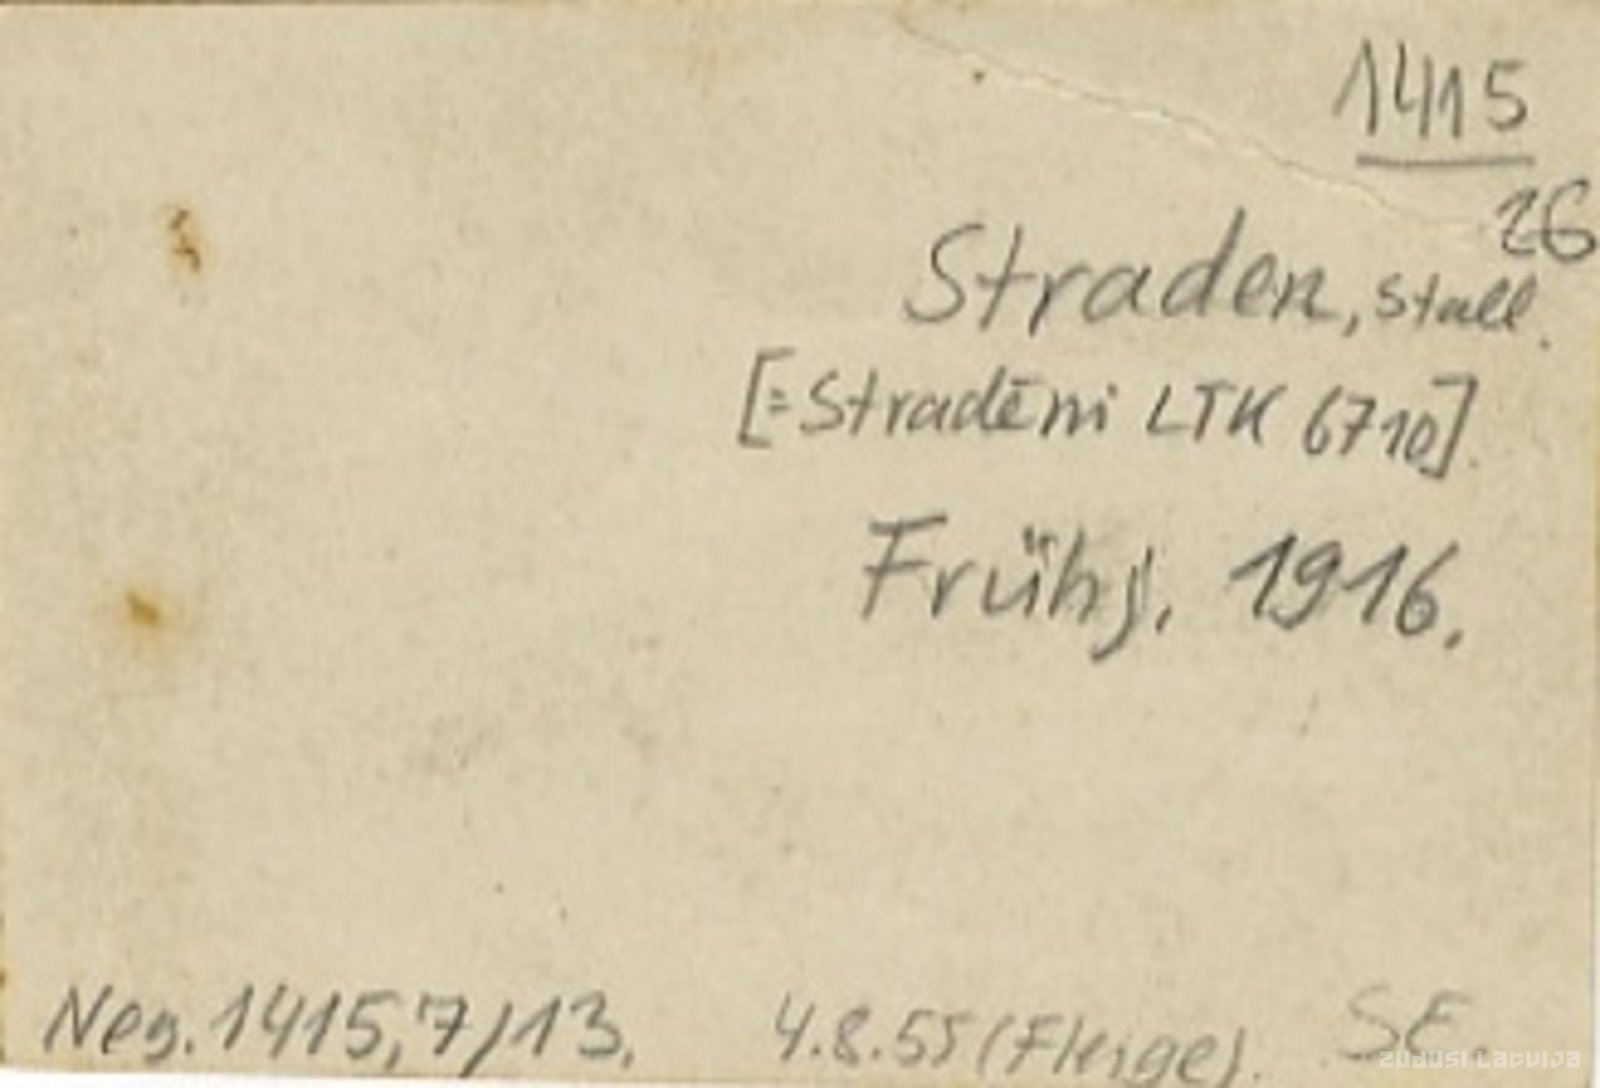 1415
26
Straden, Stall.
[=Stradēni LTK 6710].
Frühj. 1916.
Neg. 1415,7/13. 4.8.55 (Fleige). SE.
ZUDUSI LATVIJA